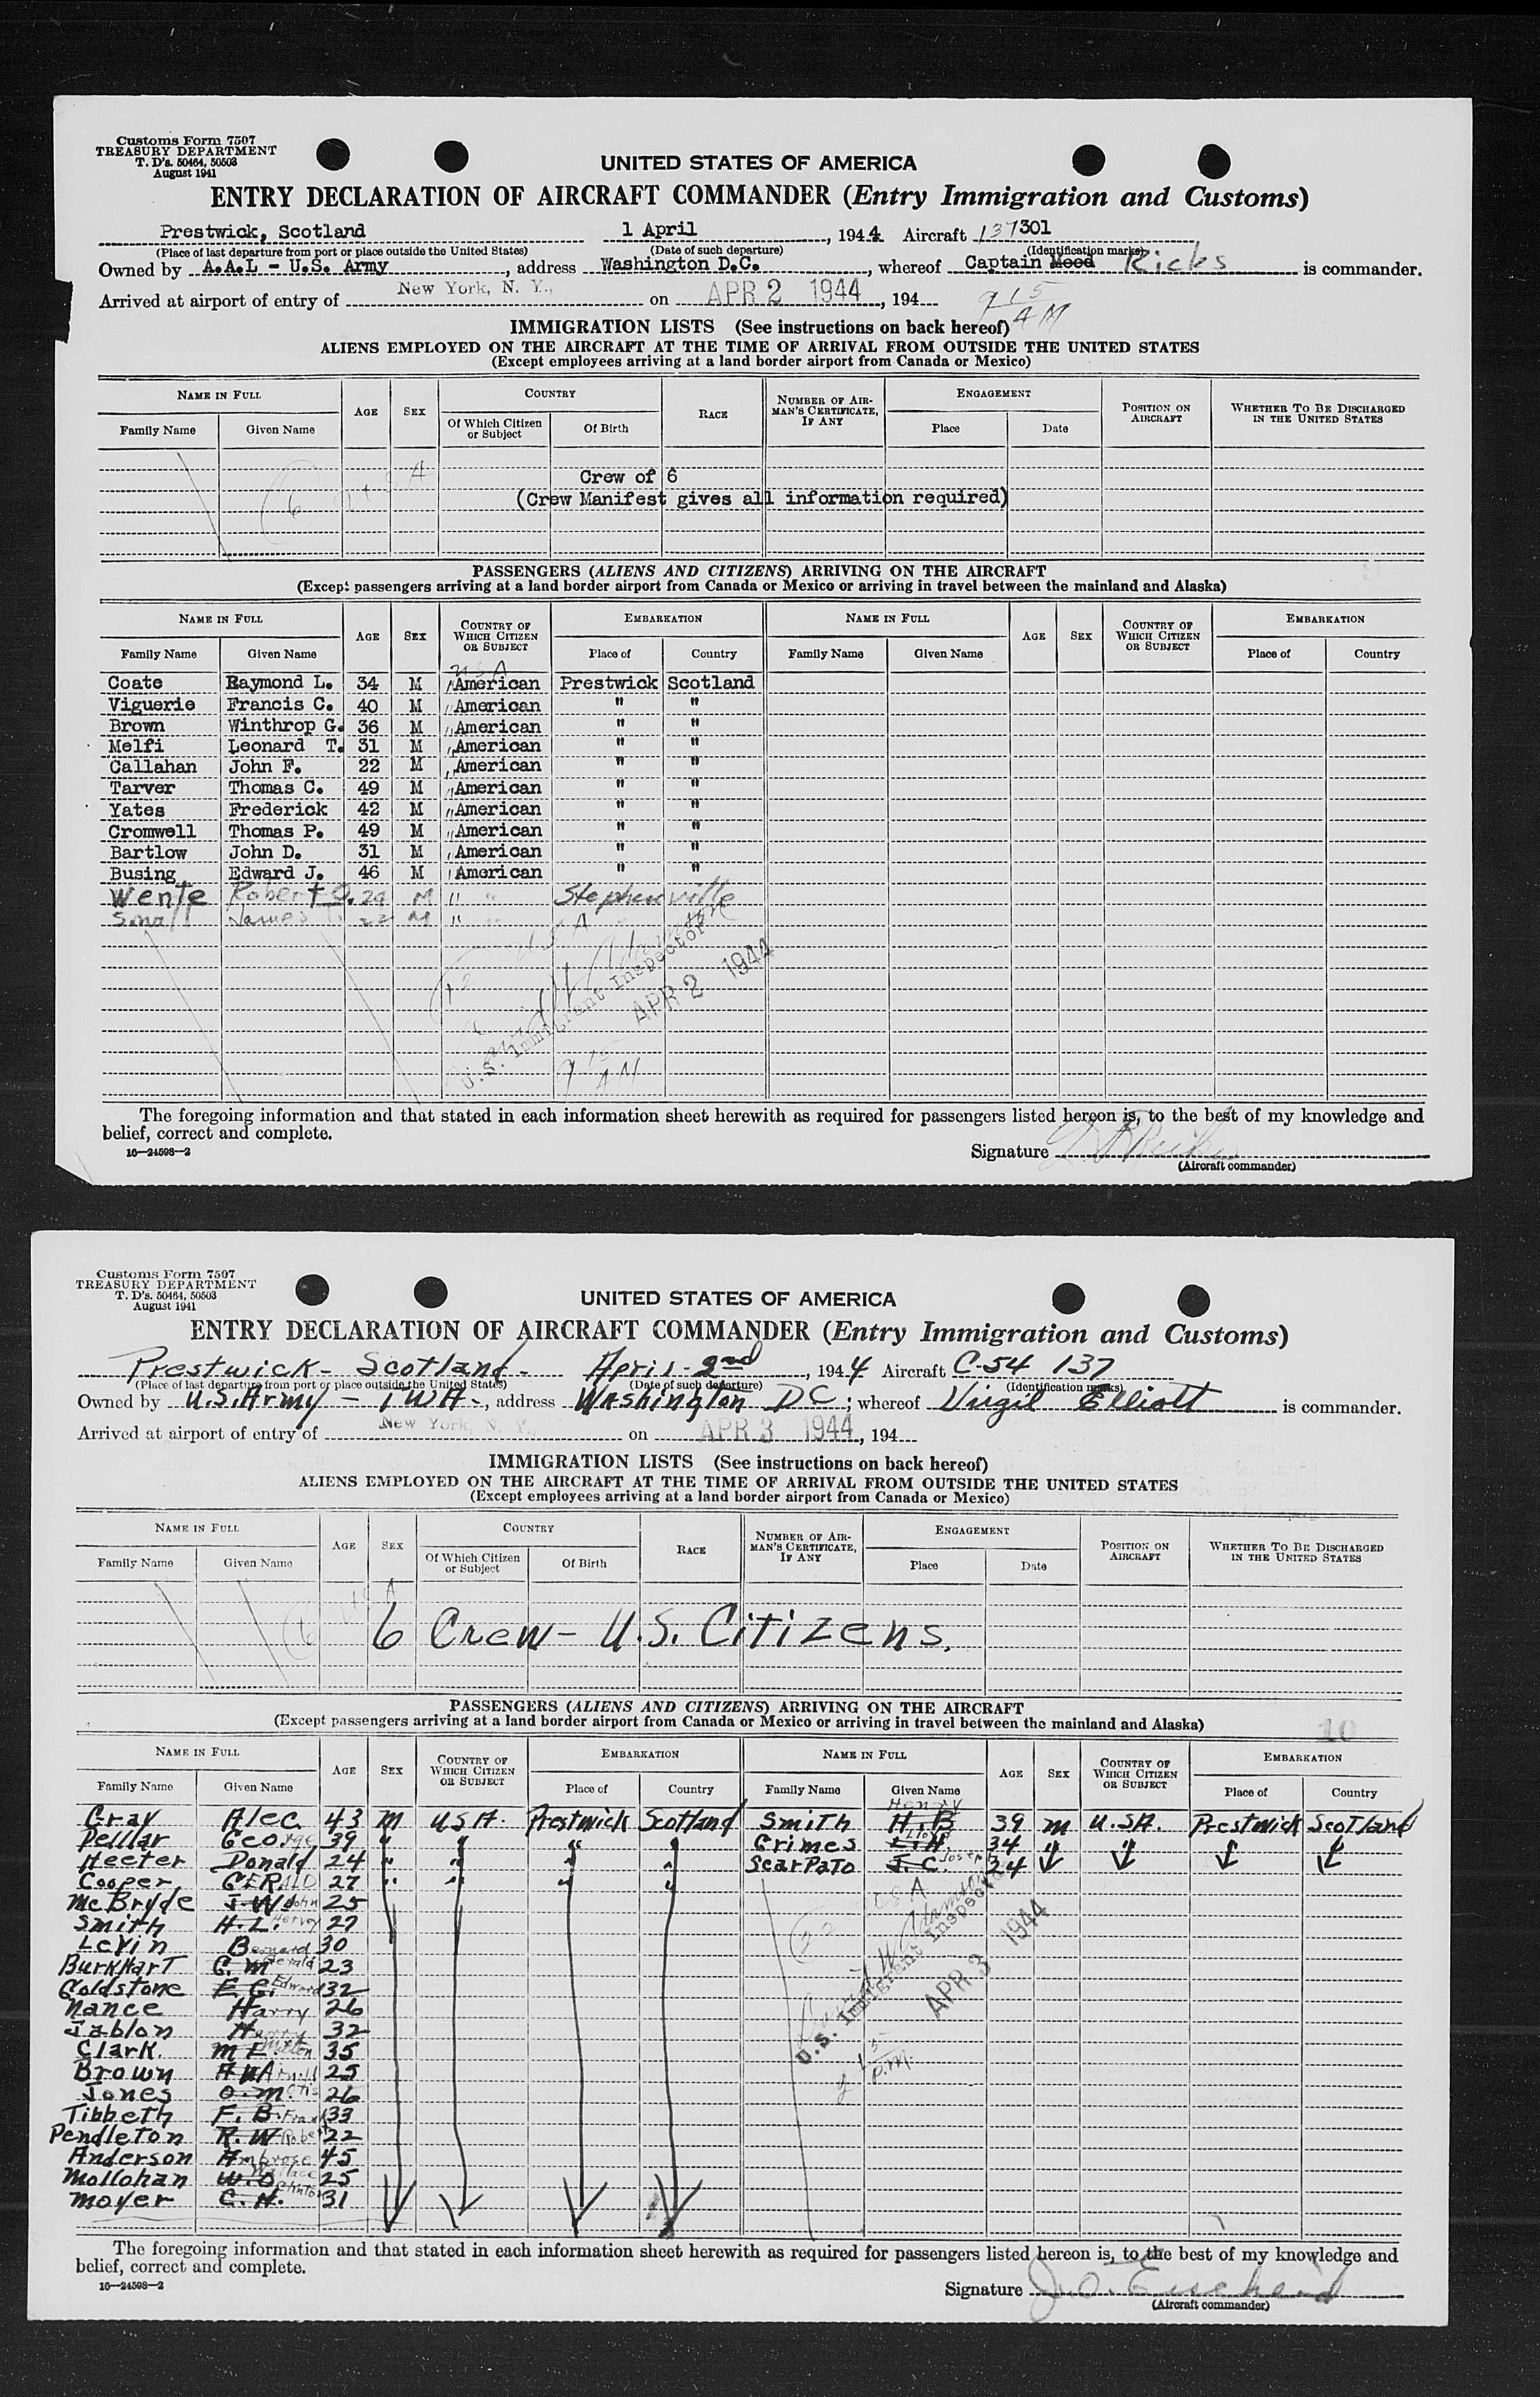 Customs Form 7507
TREASURY DEPARTMENT
T. D's. 50464, 50503
August 1941
UNITED STATES OF AMERICA
ENTRY DECLARATION OF AIRCRAFT COMMANDER (Entry Immigration and Customs)
Prestwick, Scotland 1 April, 1944 Aircraft 137301
(Place of last departure from port or place outside the United States) (Date of such departure) (Identification marks)
Owned by A.A.L - U.S. Army, address Washington D.C., whereof Captain Mood Ricks is commander.
Arrived at airport of entry of New York, N. Y., on APR 2 1944, 194
9 15 AM
IMMIGRATION LISTS (See instructions on back hereof)
ALIENS EMPLOYED ON THE AIRCRAFT AT THE TIME OF ARRIVAL FROM OUTSIDE THE UNITED STATES
(Except employees arriving at a land border airport from Canada or Mexico)
NAME IN FULL AGE SEX COUNTRY RACE NUMBER OF AIRMAN'S CERTIFICATE, IF ANY ENGAGEMENT POSITION ON AIRCRAFT WHETHER TO BE DISCHARGED IN THE UNITED STATES
Family Name Given Name Of Which Citizen or Subject Of Birth Place Date
6 USA
Crew of 6
(Crew Manifest gives all information required)
PASSENGERS (ALIENS AND CITIZENS) ARRIVING ON THE AIRCRAFT
(Except passengers arriving at a land border airport from Canada or Mexico or arriving in travel between the mainland and Alaska)
NAME IN FULL AGE SEX COUNTRY OF WHICH CITIZEN OR SUBJECT EMBARKATION NAME IN FULL AGE SEX COUNTRY OF WHICH CITIZEN OR SUBJECT EMBARKATION
Family Name Given Name Place of Country Family Name Given Name Place of Country
USA
Coate Raymond L. 34 M American Prestwick Scotland
Viguerie Francis C. 40 M " American " "
Brown Winthrop G. 36 M " American " "
Melfi Leonard T. 31 M " American " "
Callahan John F. 22 M " American " "
Tarver Thomas C. 49 M " American " "
Yates Frederick 42 M " American " "
Cromwell Thomas P. 49 M " American " "
Bartlow John D. 31 M " American " "
Busing Edward J. 46 M " American " "
Wente Robert O. 29 M " " Stephenville
Small James 22 M " "
12 USA
U.S. Immigrant Inspector
APR 2 1944
9 15 AM
The foregoing information and that stated in each information sheet herewith as required for passengers listed hereon is, to the best of my knowledge and
belief, correct and complete.
16—24598—2
Signature
(Aircraft commander)
Customs Form 7507
TREASURY DEPARTMENT
T. D's. 50464, 50503
August 1941
UNITED STATES OF AMERICA
ENTRY DECLARATION OF AIRCRAFT COMMANDER (Entry Immigration and Customs)
Prestwick - Scotland - April - 2nd, 1944. Aircraft C-54 137
(Place of last departure from port or place outside the United States) (Date of such departure) (Identification marks)
Owned by U.S. Army - TWA -, address Washington DC; whereof Virgil Elliott is commander.
Arrived at airport of entry of New York, N. Y., on APR 3 1944, 194
IMMIGRATION LISTS (See instructions on back hereof)
ALIENS EMPLOYED ON THE AIRCRAFT AT THE TIME OF ARRIVAL FROM OUTSIDE THE UNITED STATES
(Except employees arriving at a land border airport from Canada or Mexico)
NAME IN FULL AGE SEX COUNTRY RACE NUMBER OF AIRMAN'S CERTIFICATE, IF ANY ENGAGEMENT POSITION ON AIRCRAFT WHETHER TO BE DISCHARGED IN THE UNITED STATES
Family Name Given Name Of Which Citizen or Subject Of Birth Place Date
6 USA
6 Crew - U.S. Citizens.
PASSENGERS (ALIENS AND CITIZENS) ARRIVING ON THE AIRCRAFT
(Except passengers arriving at a land border airport from Canada or Mexico or arriving in travel between the mainland and Alaska)
10
NAME IN FULL AGE SEX COUNTRY OF WHICH CITIZEN OR SUBJECT EMBARKATION NAME IN FULL AGE SEX COUNTRY OF WHICH CITIZEN OR SUBJECT EMBARKATION
Family Name Given Name Place of Country Family Name Given Name Place of Country
Gray Alec 43 M USA. Prestwick Scotland Smith H.B Henry 39 m U.SA. Prestwick Scotland
Pellar George 39 " " " " Grimes L.H Lloyd 34
Heeter Donald 24 " " " " Scarpato J. C. Joseph 24
Cooper GERALD 27 " " " "
McBryde J.W John 25
Smith H.L. Harvey 27
Levin Bernard 30
Burkhart G. M Gerald 23
Goldstone E G. Edward 32
Nance Harry 26
Jablon H 32
Clark M E Milton 35
Brown A W 25
Jones O.M. Otis 26
Tibbeth F. B. Frank 33
Pendleton R. W Robert 22
Anderson Ambrose 45
Mollohan W.O Wallace 25
Moyer C. H. Clinton 31
22 USA
U.S. Immigrant Inspector
APR 3 1944
p.m.
The foregoing information and that stated in each information sheet herewith as required for passengers listed hereon is, to the best of my knowledge and
belief, correct and complete.
16—24598—2
Signature
(Aircraft commander)